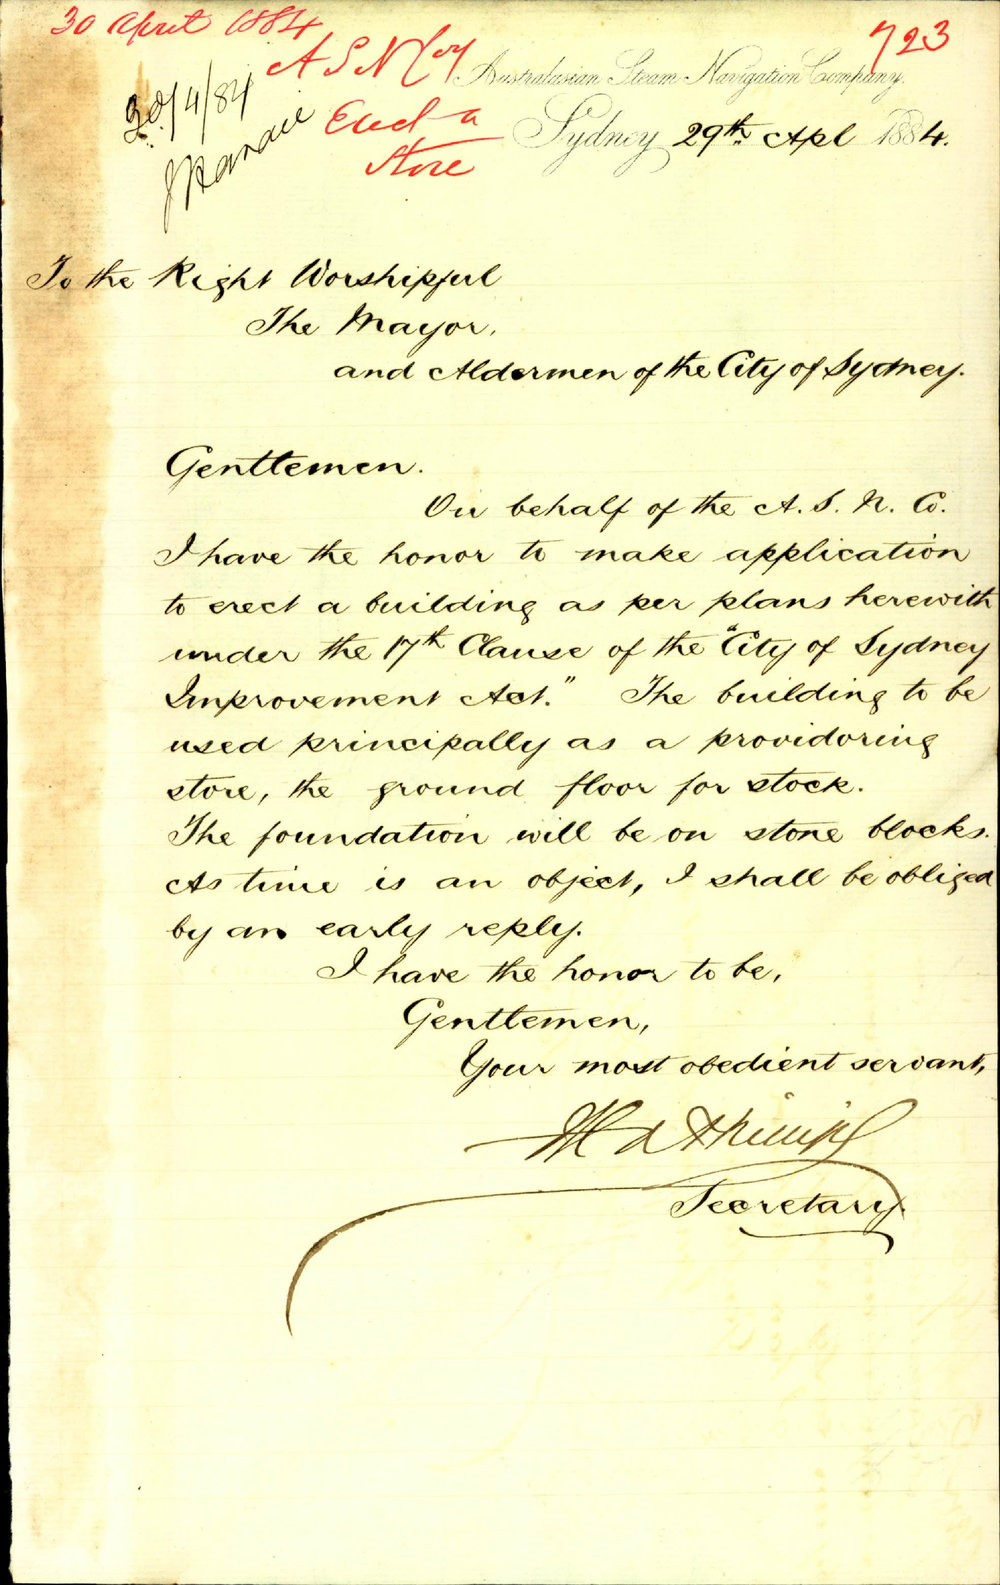 30 April 1884
A S N Coy
Erect a
Store
723
30/4/84
Australasian Steam Navigation Company.
Sydney 29th Apl 1884.
To the Right Worshipful
The Mayor,
and Aldermen of the City of Sydney.
Gentlemen.
On behalf of the A. S. N. Co.
I have the honor to make application
to erect a building as per plans herewith
under the 17th Clause of the "City of Sydney
Improvement Act." The building to be
used principally as a providoring
store, the ground floor for stock.
The foundation will be on stone blocks.
As time is an object, I shall be obliged
by an early reply.
I have the honor to be,
Gentlemen,
Your most obedient servant,
Secretary